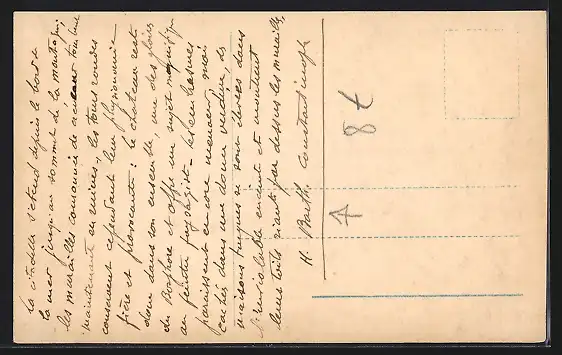 La citadelle s'étend depuis le bord de
la mer jusqu'au sommet de la montagne;
les murailles couronnées de créneaux tombent
maintenant en ruines, les tours rondes
conservent cependant leur physionomie
fière et provocante: le château reste
donc dans son ensemble, un des plus
du Bosphore et offre un sujet magnifique
au peintre paysagiste. Les embrasures
paraissent encore menacer, mais
cachés dans une douce verdure, des
maisons turques se sont élevées dans
l'inviolable enceinte et montrent
leurs toits riants par dessus les murailles,
H. Barth, Constantinople
8 t